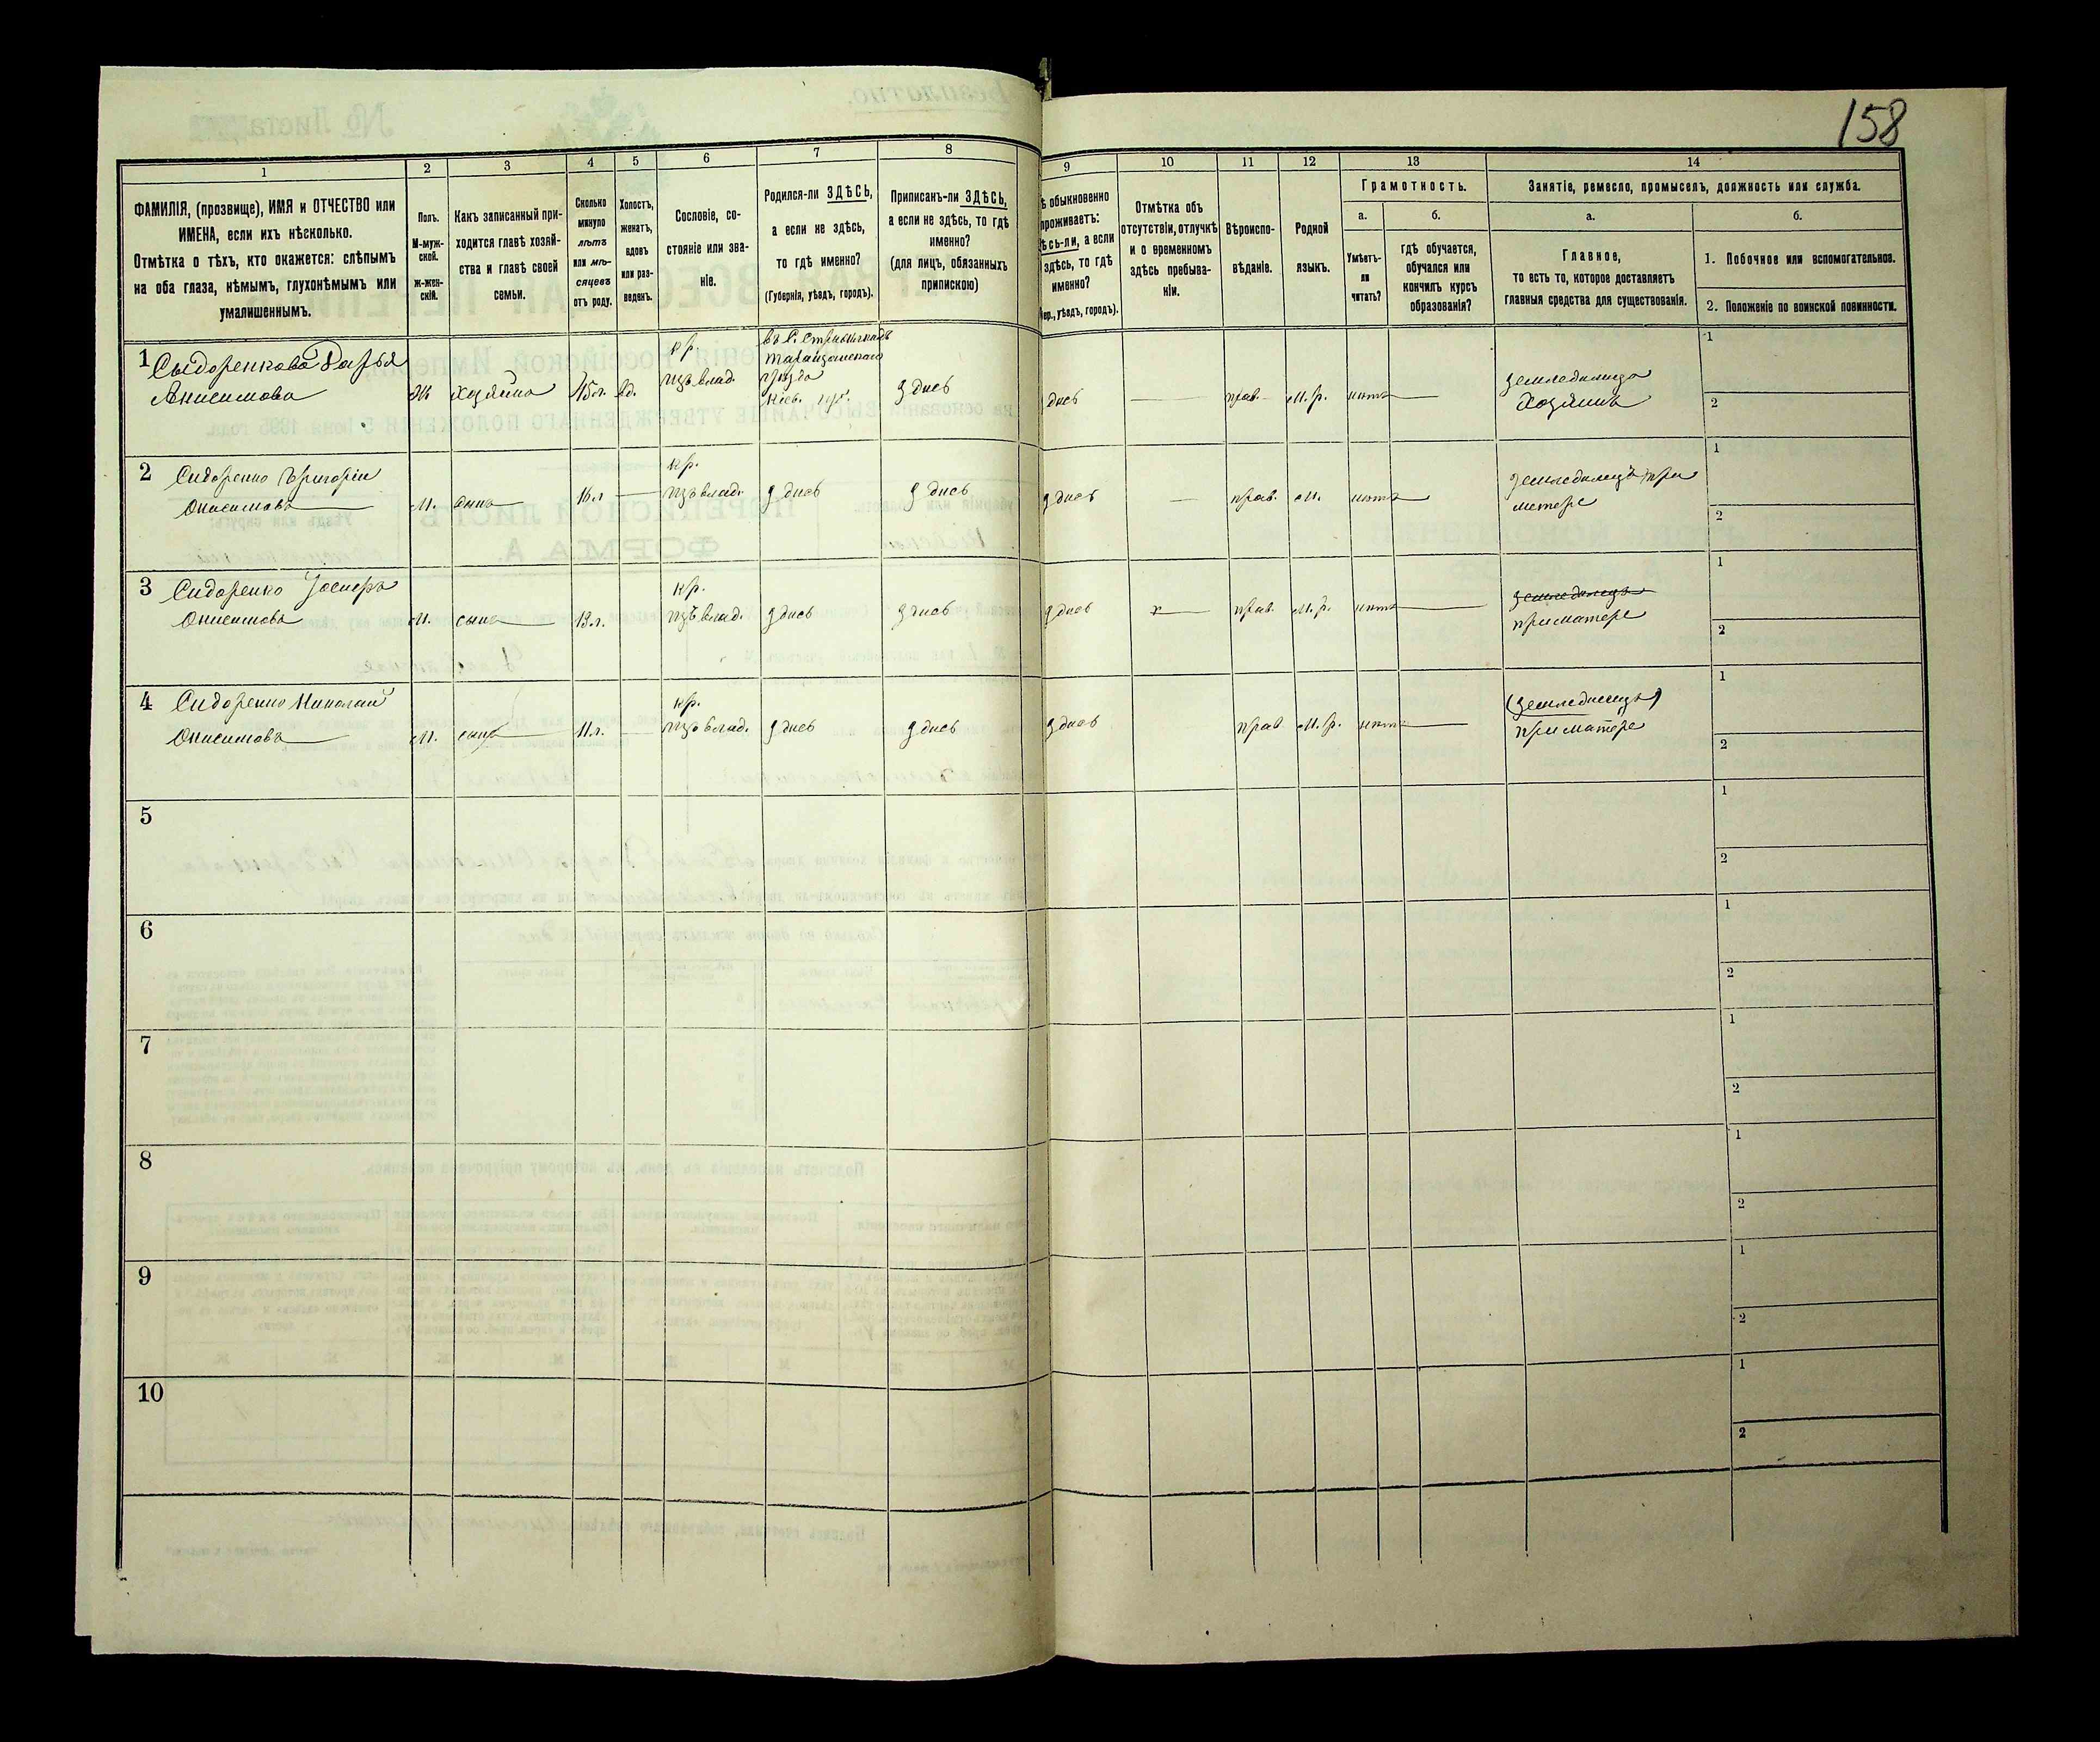 158
1
2
3
4
5
6
7
8
9
10
11
12
13
14
ФАМИЛІЯ, (прозвище), ИМЯ и ОТЧЕСТВО или
ИМЕНА, если ихъ нѣсколько.
Отмѣтка о тѣхъ, кто окажется: слѣпымъ
на оба глаза, нѣмымъ, глухонѣмымъ или
умалишеннымъ.
Полъ.
М-муж-
ской.
Ж-жен-
скій.
Какъ записанный при-
ходится главѣ хозяй-
ства и главѣ своей
семьи.
Сколько
минуло
лѣтъ
или мѣ-
сяцевъ
отъ роду.
Холостъ,
женатъ,
вдовъ
или раз-
веденъ.
Сословіе, со-
стояніе или зва-
ніе.
Родился-ли ЗДѢСЬ,
а если не здѣсь,
то гдѣ именно?
(Губернія, уѣздъ, городъ).
Приписанъ-ли ЗДѢСЬ,
а если не здѣсь, то гдѣ
именно?
(для лицъ, обязанныхъ
припискою)
обыкновенно
проживаетъ:
а если
здѣсь, то гдѣ
именно?
уѣздъ, городъ).
Отмѣтка объ
отсутствіи, отлучкѣ
и о временномъ
здѣсь пребыва-
ніи.
Вѣроиспо-
вѣданіе.
Родной
языкъ.
Грамотность.
а.
б.
Умѣетъ-
ли
читать?
гдѣ обучается,
обучался или
кончилъ курсъ
образованія?
Занятіе, ремесло, промыселъ, должность или служба.
а.
б.
Главное,
то есть то, которое доставляетъ
главныя средства для существованія.
1. Побочное или вспомогательное.
2. Положеніе по воинской повинности.
1
Сыдоренкова Дарья
Анисимова
Ж
хозяйка
45 л.
вд.
кр.
изъ влад.
Таращанскаго
уѣзда
Кіев. губ.
здесь
прав.
М. р.
нѣтъ
хозяинъ
1
2
2
Сидоренко Григорій
Онисимовъ
М.
сынъ
16 л
кр.
изъ влад.
здесь
здесь
здесь
прав.
М.
нѣтъ
земледелецъ при
матере
1
2
3
Сидоренко
Онисимовъ
М.
сынъ
13 л.
кр.
изъ влад.
здесь
здесь
здесь
прав.
М. р.
нѣтъ
земледелецъ
при матере
1
2
4
Сидоренко Николай
Онисимовъ
М.
сынъ
11 л.
кр.
изъ влад.
здесь
здесь
здесь
прав
М. р.
нѣтъ
(земледелецъ)
при матере
1
2
5
1
2
6
1
2
7
1
2
8
1
2
9
1
2
10
1
2